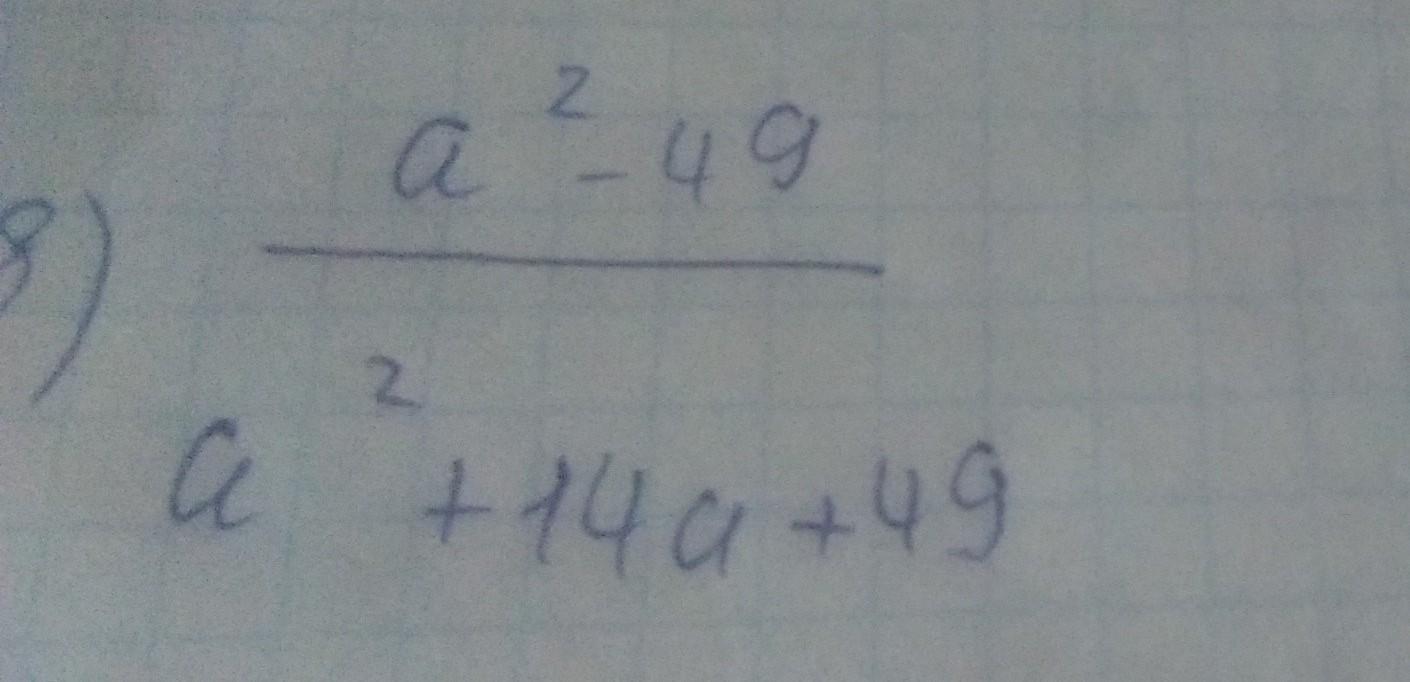 a² - 49
8)
a² + 14a + 49